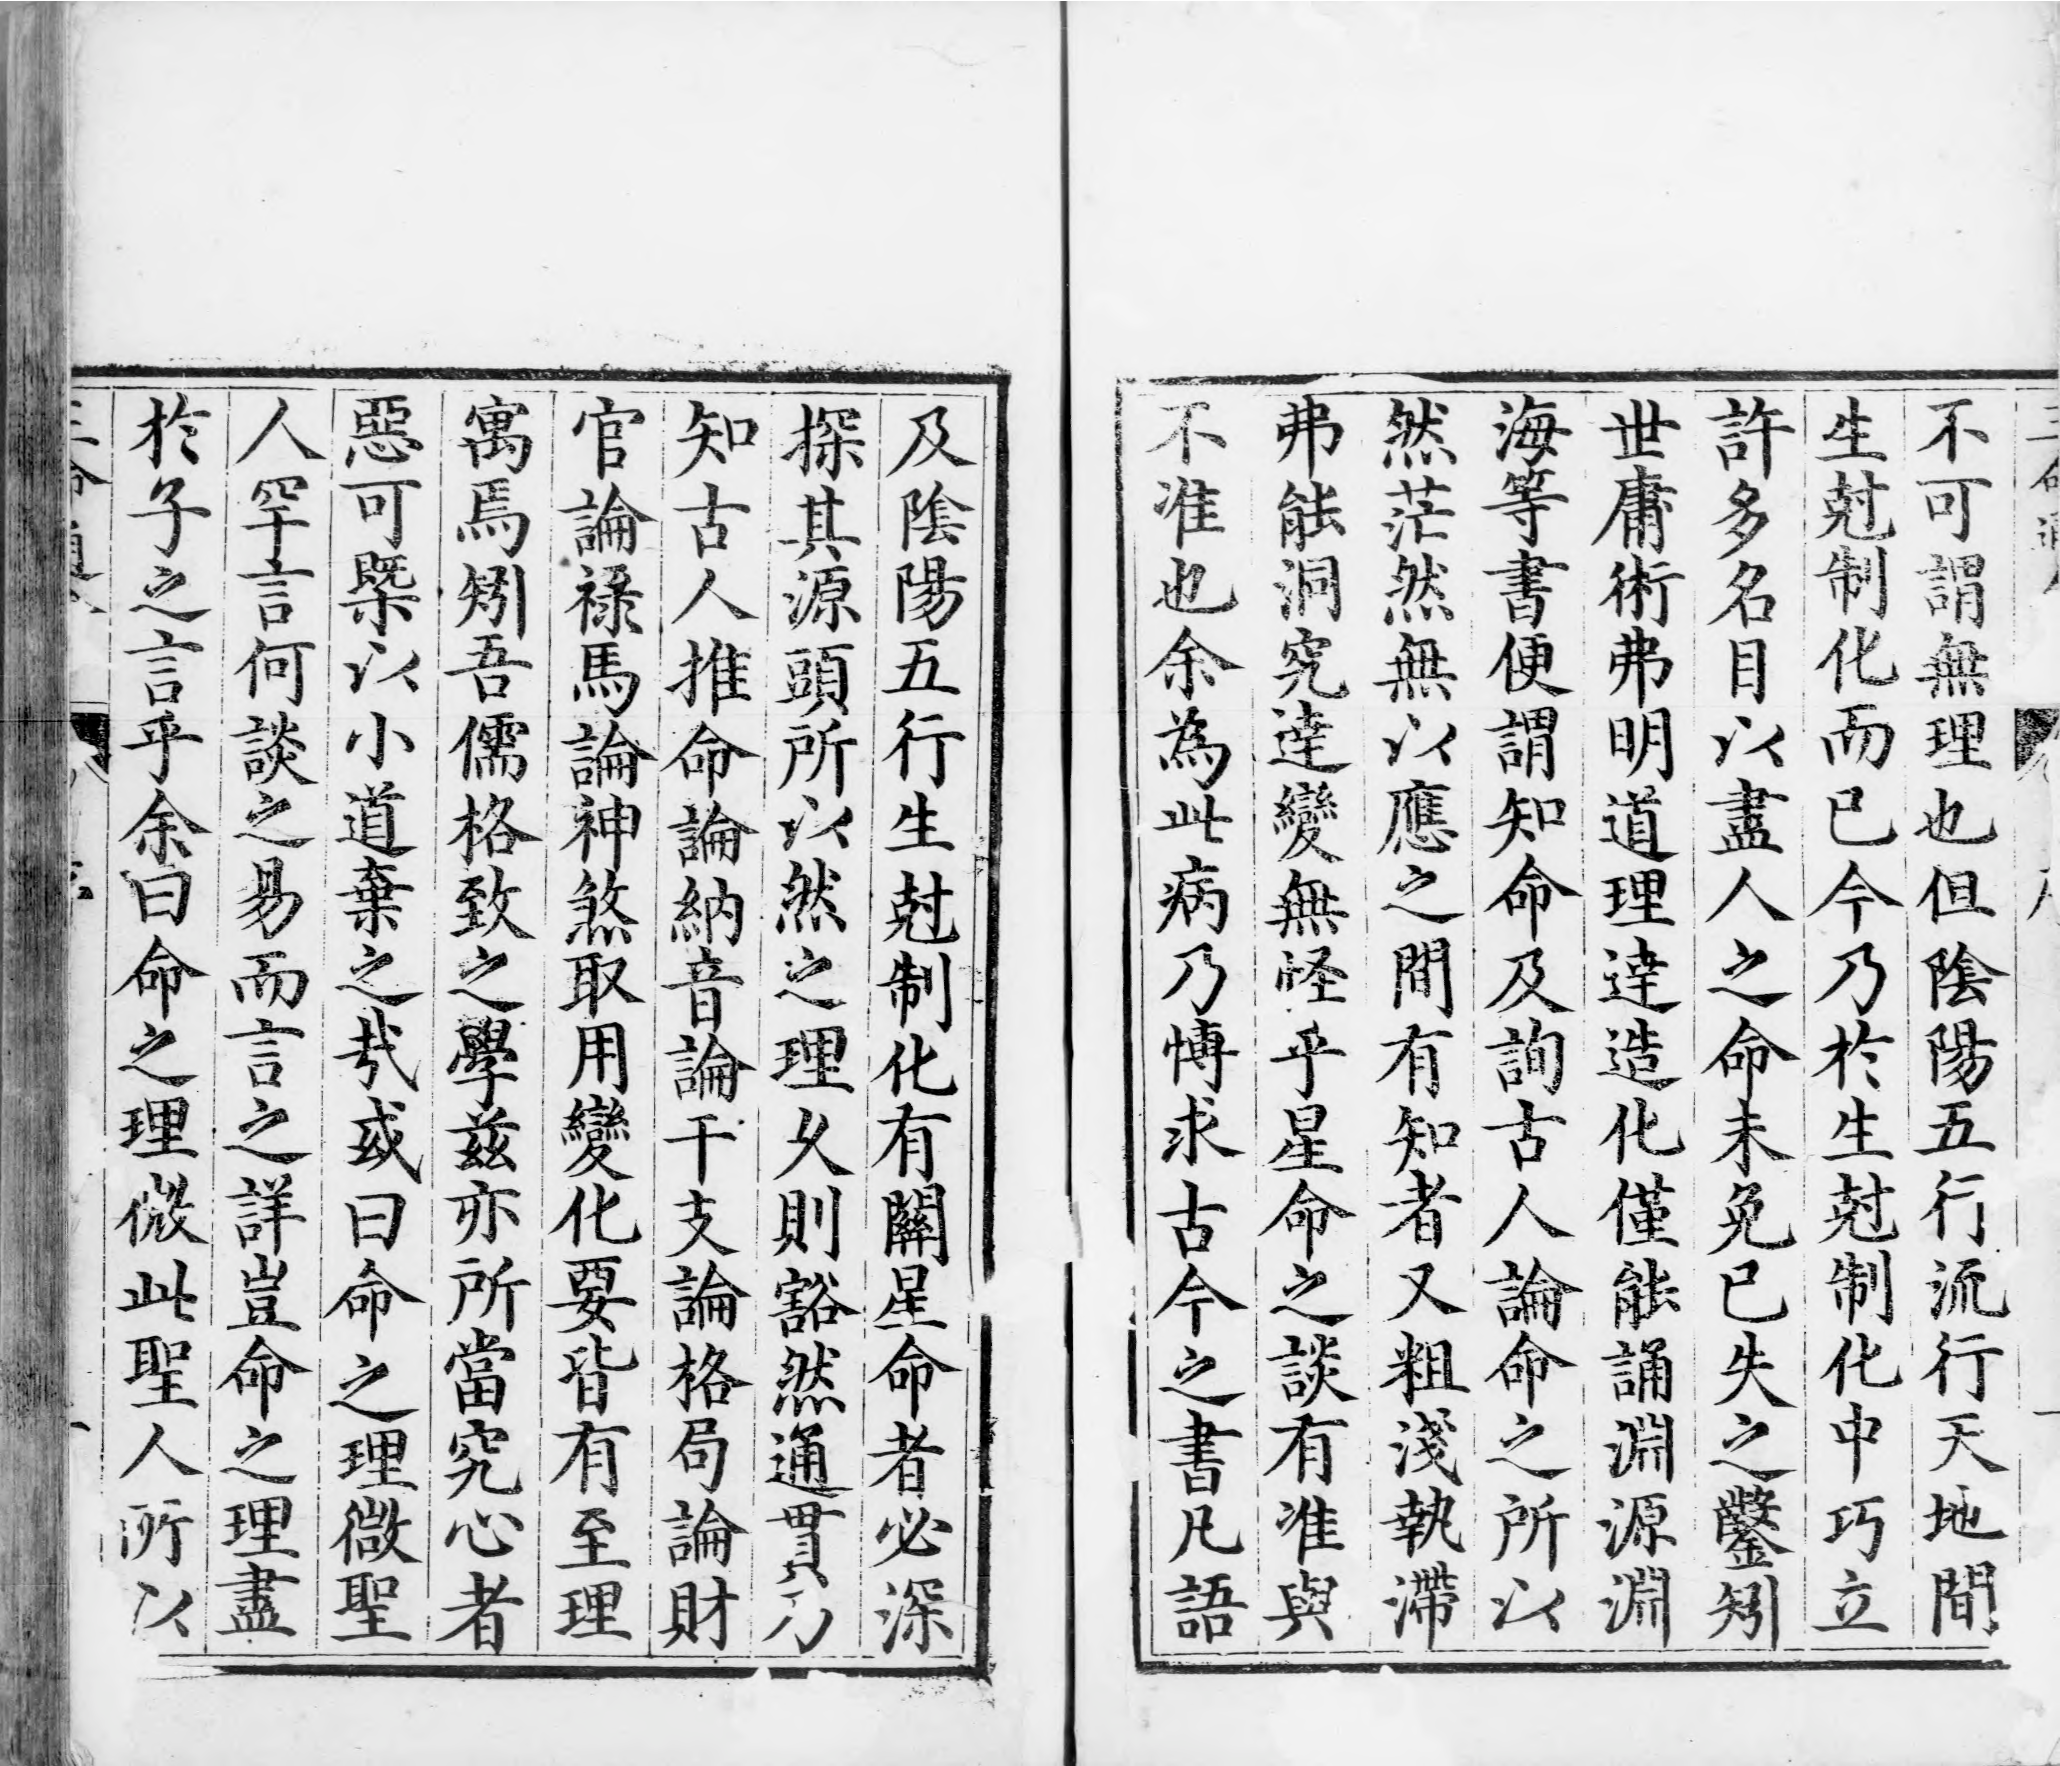 不可謂無理也但陰陽五行流行天地間
生尅制化而已今乃於生尅制化中巧立
許多名目以盡人之命未免已失之鑿矧
世庸術弗明道理逹造化僅能誦淵源淵
海等書便謂知命及詢古人論命之所以
然茫然無以應之間有知者又粗淺執滯
弗能洞究逹變無怪乎星命之談有准與
不准也余為此病乃博求古今之書凡語
及陰陽五行生尅制化有關星命者必深
探其源頭所以然之理乆則豁然通貫乃
知古人推命論納音論干支論格局論財
官論祿馬論神煞取用變化要皆有至理
寓焉矧吾儒格致之學兹亦所當究心者
惡可槩以小道棄之㢤或曰命之理微聖
人罕言何談之易而言之詳豈命之理盡
於子之言乎余曰命之理微此聖人所以